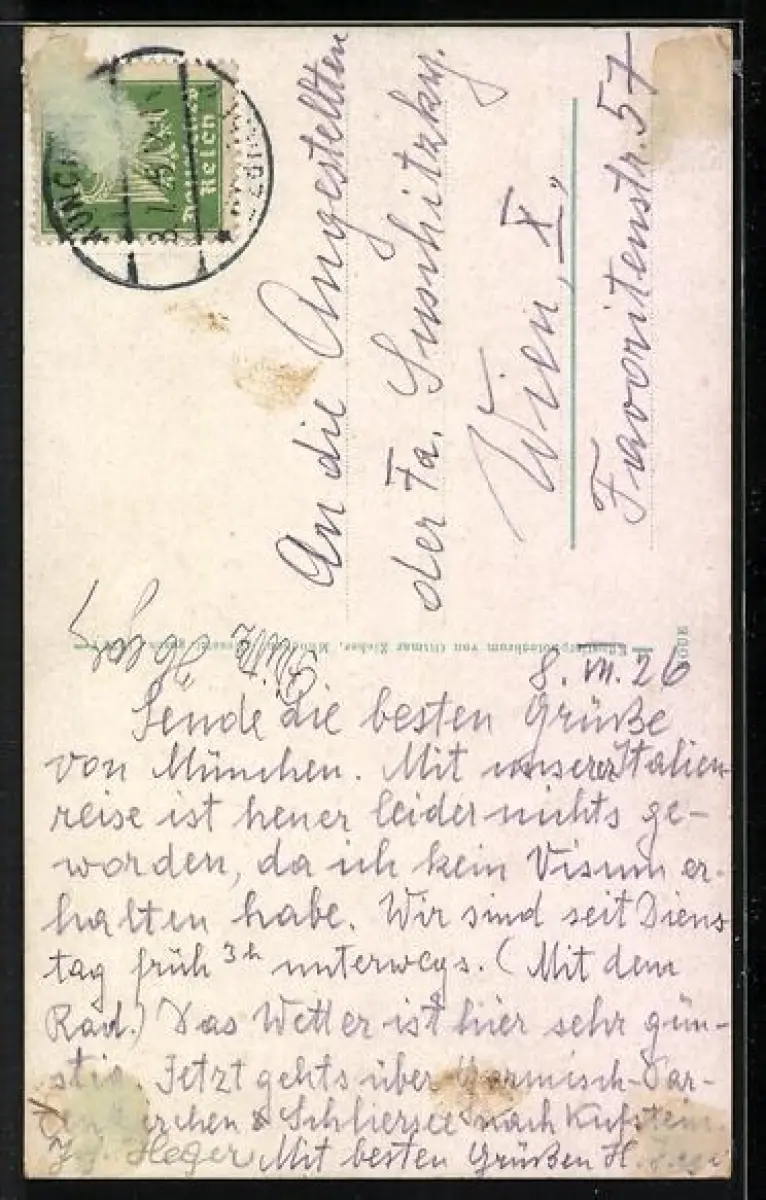 Deutsches Reich
MÜNCHEN
An die Angestellten
der Fa. Suschitzky.
Wien, X.,
Favoritenstr. 57
8. VII. 26
Sende die besten Grüße
von München. Mit unserer Italien
reise ist heuer leider nichts ge-
worden, da ich kein Visum er-
halten habe. Wir sind seit Diens
tag früh 3h unterwegs. (Mit dem
Rad.) Das Wetter ist hier sehr gün-
stig. Jetzt gehts über Garmisch-Par-
tenkirchen & Schliersee nach Kufstein.
Heger Mit besten Grüßen H.